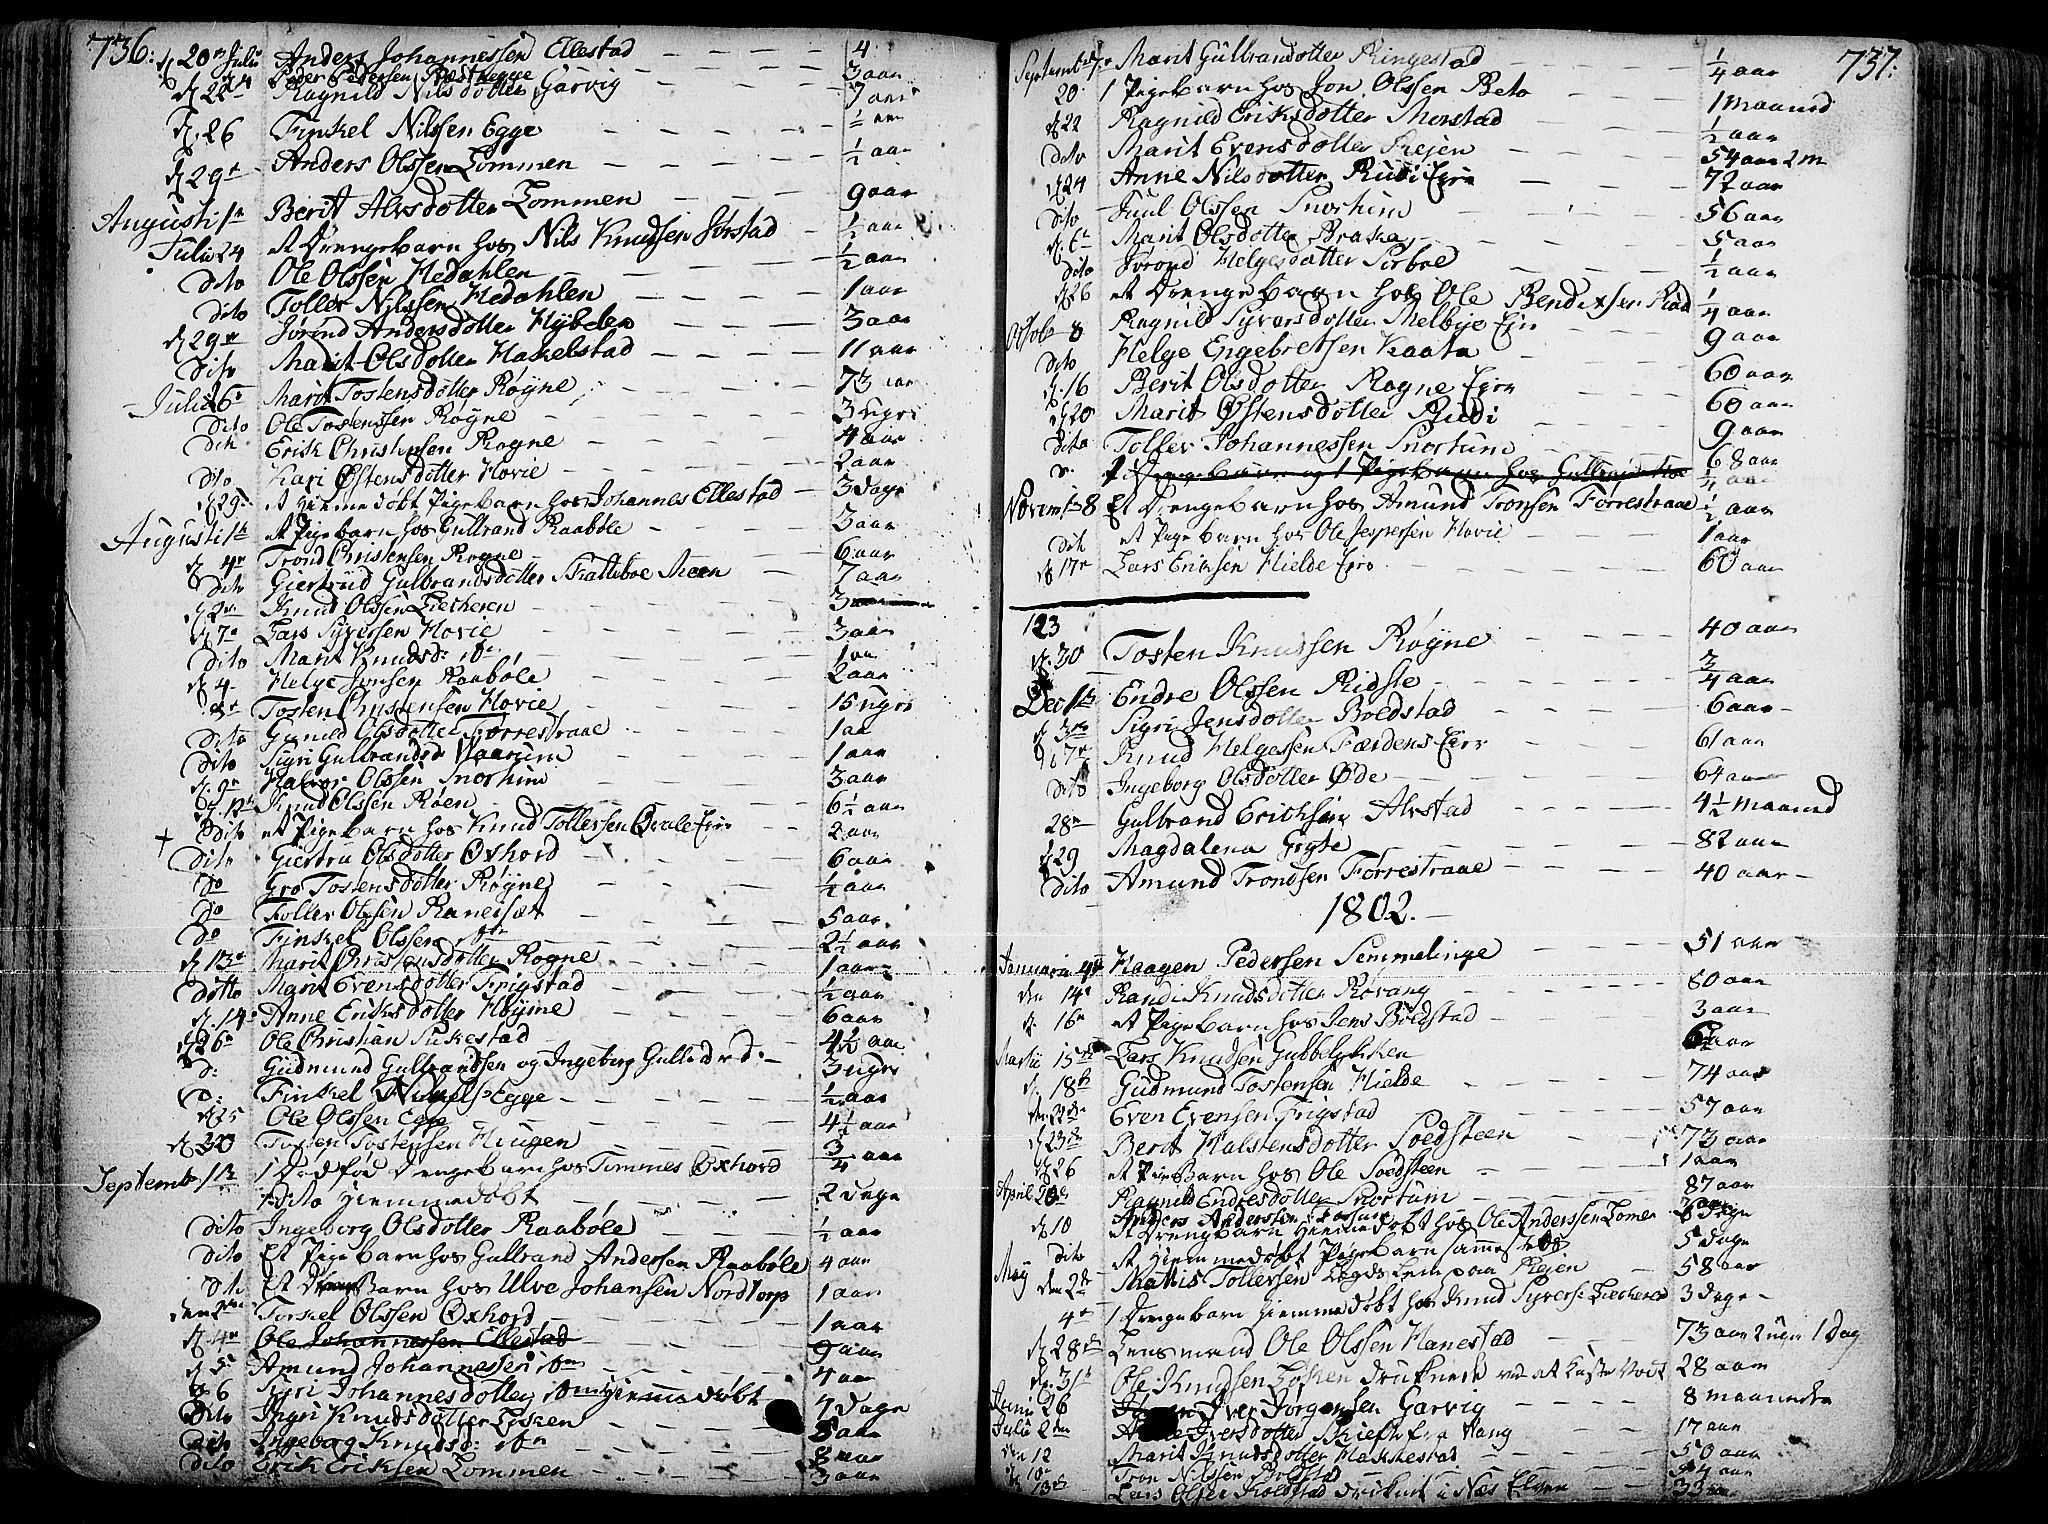 736:
d. 20de Julii Anders Johannessen Ellestad — 4
d. 24 Peder Pedersen Præsthegge — 3 aar
d. 22de Ragnild Nilsdotter Garvig — 7 aar
d. 26 Finkel Nilssen Egge — 1/2 aar
d. 29de Anders Olssen Lommen — 1/2 aar
Augusti 1ste Berit Alvsdotter Lommen — 9 aar
Julii 24 et Drengebarn hos Nils Knudsen Jørstad — 1/2 aar
Dito Ole Olssen Hedahlen — 1/2 aar
Dito Toller Nilssen Hedahlen — 1 aar
d. 29de Jørend Andersdotter Hybelen — 3 aar
Dito Marit Olsdotter Hakelstad — 11 aar
Julii 6te Marit Tostensdotter Røyne — 73 aar
Dito Ole Tostenssen Røgne — 3 ugrs
Dito Erik Christensen Rogne — 4 aar
Dito Kari Østensdotter Hovie — 2 aar
d. 29 et Hiemmedøbt Pigebarn hos Johannes Ellestad — 3 dage
Augusti 1ste et Pigebarn hos Gulbrand Raabøle — 3 aar
d. 4de Trond Christensen Rogne — 6 aar
Dito Giertrud Gulbrandsdotter Skatteboe Meen — 7 aar
d. 2den Knud Olssen Liecheren — 3 aar
d. 7de Lars Syverssen Hovie — 3 aar
Dito Marit Knudsd: ibm — 1 aar
d. 4 Helge Jonsen Raabøle — 2 aar
Tosten Christensen Hovie — 15 ugrs
Dito Gunild Olsdotter Førrestraae — 1 aar
Dito Sigri Gulbrandsd Vaarum — 1 aar
d. 9de Halvor Olssen Snortum — 3 aar
d. 12te Knud Olssen Røen — 6 1/2 aar
Dito et Pigebarn hos Knud Tollersen Qvale Eyer — 2 aar
Dito Giertru Olsdotter Oxhord — 6 aar
Do Gro Tostensdotter Røgne — 1/2 aar
Do Toller Olssen Raneisæt — 5 aar
Do Finkel Olssen ibm — 2 1/2 aar
d. 13de Marit Christensdotter Rogne — 1 aar
Ditto Marit Evensdotter Trigstad — 1/2 aar
d. 14de Anne Eriksdotter Høyme — 6 aar
d. 26de Ole Christian Sukestad — 4 1/2 aar
d: Gudmund Gulbrandsen og Ingeborg Gulbrd: — 3 ugrs
d: Finkel Egge — 1/2 aar
d. 25 Ole Olssen Egge — 4 1/2 aar
d. 30 Tosten Tostensen Hiugen — 3/4 aar
Septembr 1ste 1 Dødfød Drengebarn hos Tommes Oxhord
1 Dito Hiemmedøbt — 2 dage
Dito Ingeborg Olsdotter Raabøle — 1/2 aar
Dito Et Pigebarn hos Gulbrand Andersen Raabøle — 4 aar
Dito Et Drengbarn hos Ulve Johansen Nordtorp — 1 aar
den 2den Torkel Olssen Oxhord — 1 aar
d. 4de Ole Johannessen Ellestad — 9 aar
d. 5 Amund Johannessen ibm — 4 aar
d. 6 Siri Johannesdotter ibm Hiemmedøbt — 4 dage
Dito Ingri Knudsdotter Løken — 8 aar
Dito Ingeborg Knudsd: ibm — 8 aar
Dito Erik Eriksen Lommen — 3 aar
737:
Septembr 17de Marit Gulbrandsdotter Ringestad — 1/4 aar
20 1 Pigebarn hos Jon Olssen Beto — 1 maaned
d. 22 Ragnild Eriksdotter Morstad — 1/2 aar
Dito Marit Evensdotter Rejen — 54 aar 2 m
d. 24 Anne Nilsdotter Rudi Eyer — 72 aar
Dito Juul Olssen Snortum — 56 aar
d. 6te Marit Olsdotter Braka — 5 aar
Dito Jorond Helgesdotter Sorboe — 1/2 aar
d. 26 et Drengebarn hos Ole Bendixsen Rud — 1/4 aar
Octob 8 Ragnild Syversdotter Melbye Ejer — 9 aar
Dito Helge Engebretsen Kaata
d. 16 Berit Olsdotter Rogne Ejer — 60 aar
d. 20 Marit Østensdotter Rudi — 60 aar
Dito Toller Johannessen Snortum — 9 aar
D. 1 Drengebarn og 1 Pigebarn hos Gulbrand — 68 aar
Novem 8 Et Drengebarn hos Amund Tronsen Førrestraae — 1/2 aar
Dito et Pige barn hos Ole Jespersen Hovie — 1 aar
d. 17de Lars Eriksen Hielde Eyer — 60 aar
123
d. 30 Tosten Knutssen Røyne — 40 aar
Dec 1ste Endre Olssen Ridste — 3/4 aar
d. 3de Sigri Jensdotter Boldstad — 6 aar
d. 17de Knud Helgessen Færdens Eyer — 61 aar
Dito Ingeborg Olsdotter Øde — 64 aar
28de Gulbrand Erichsen Alvstad — 4 1/2 maaned
d. 29 Magdalena Gryte — 82 aar
Dito Amund Trondsen Førrestraae — 40 aar
1802.
Januarii 4de Haagen Pedersen Semmelinge — 51 aar
den 14de Randi Knudsdotter Røvang — 80 aar
d. 16de et Pigebarn hos Jens Boldstad — 3 aar
Martii 15de Lars Knudsen Gubbelykken — aar
d. 18de Gudmund Tostensen Hielde — 74 aar
den 22de Even Evensen Trigstad — 57 aar
d. 23de Berit Halstensdotter Soedsteen — 73 aar
d. 26 et Pigebarn hos Ole Soedsteen — 1 aar
April Ragnild Endresdotter Snortum — 87 aar
Anders Anderssen Fossum
d. 10 et Drengbarn Hiemmedøbt hos Ole Anderssen Lomen
Dito et Hiemmedøbt Pigebarn sammesteds — 5 dage
May den 2de Mattis Tollersen Lægds Lem paa Rejen — 58 aar
4de 1 Drengebarn Hiemmedøbt hos Knud Syvers: Liecheren — 3 dage
d. 28de Lensmand Ole Olssen Hanestad — 73 aar 2 uger 1 Dag
d. 31te Ole Knudsen Løken Druknede ved at kaste Vodt — 28 aar
Junii 26 Iver Jørgensen Garvig — 8 maaneder
Julii 2den Iversdotter Skieft fra Vang — 17 aar
den 12 Marit Knudsdotter Hakkestad — 50 aar
d. 10de Tron Nilssen Boldstad — 54 aar
d. 13de Lars Olssen Koldstad druknet i Næs Elven — 33 aar